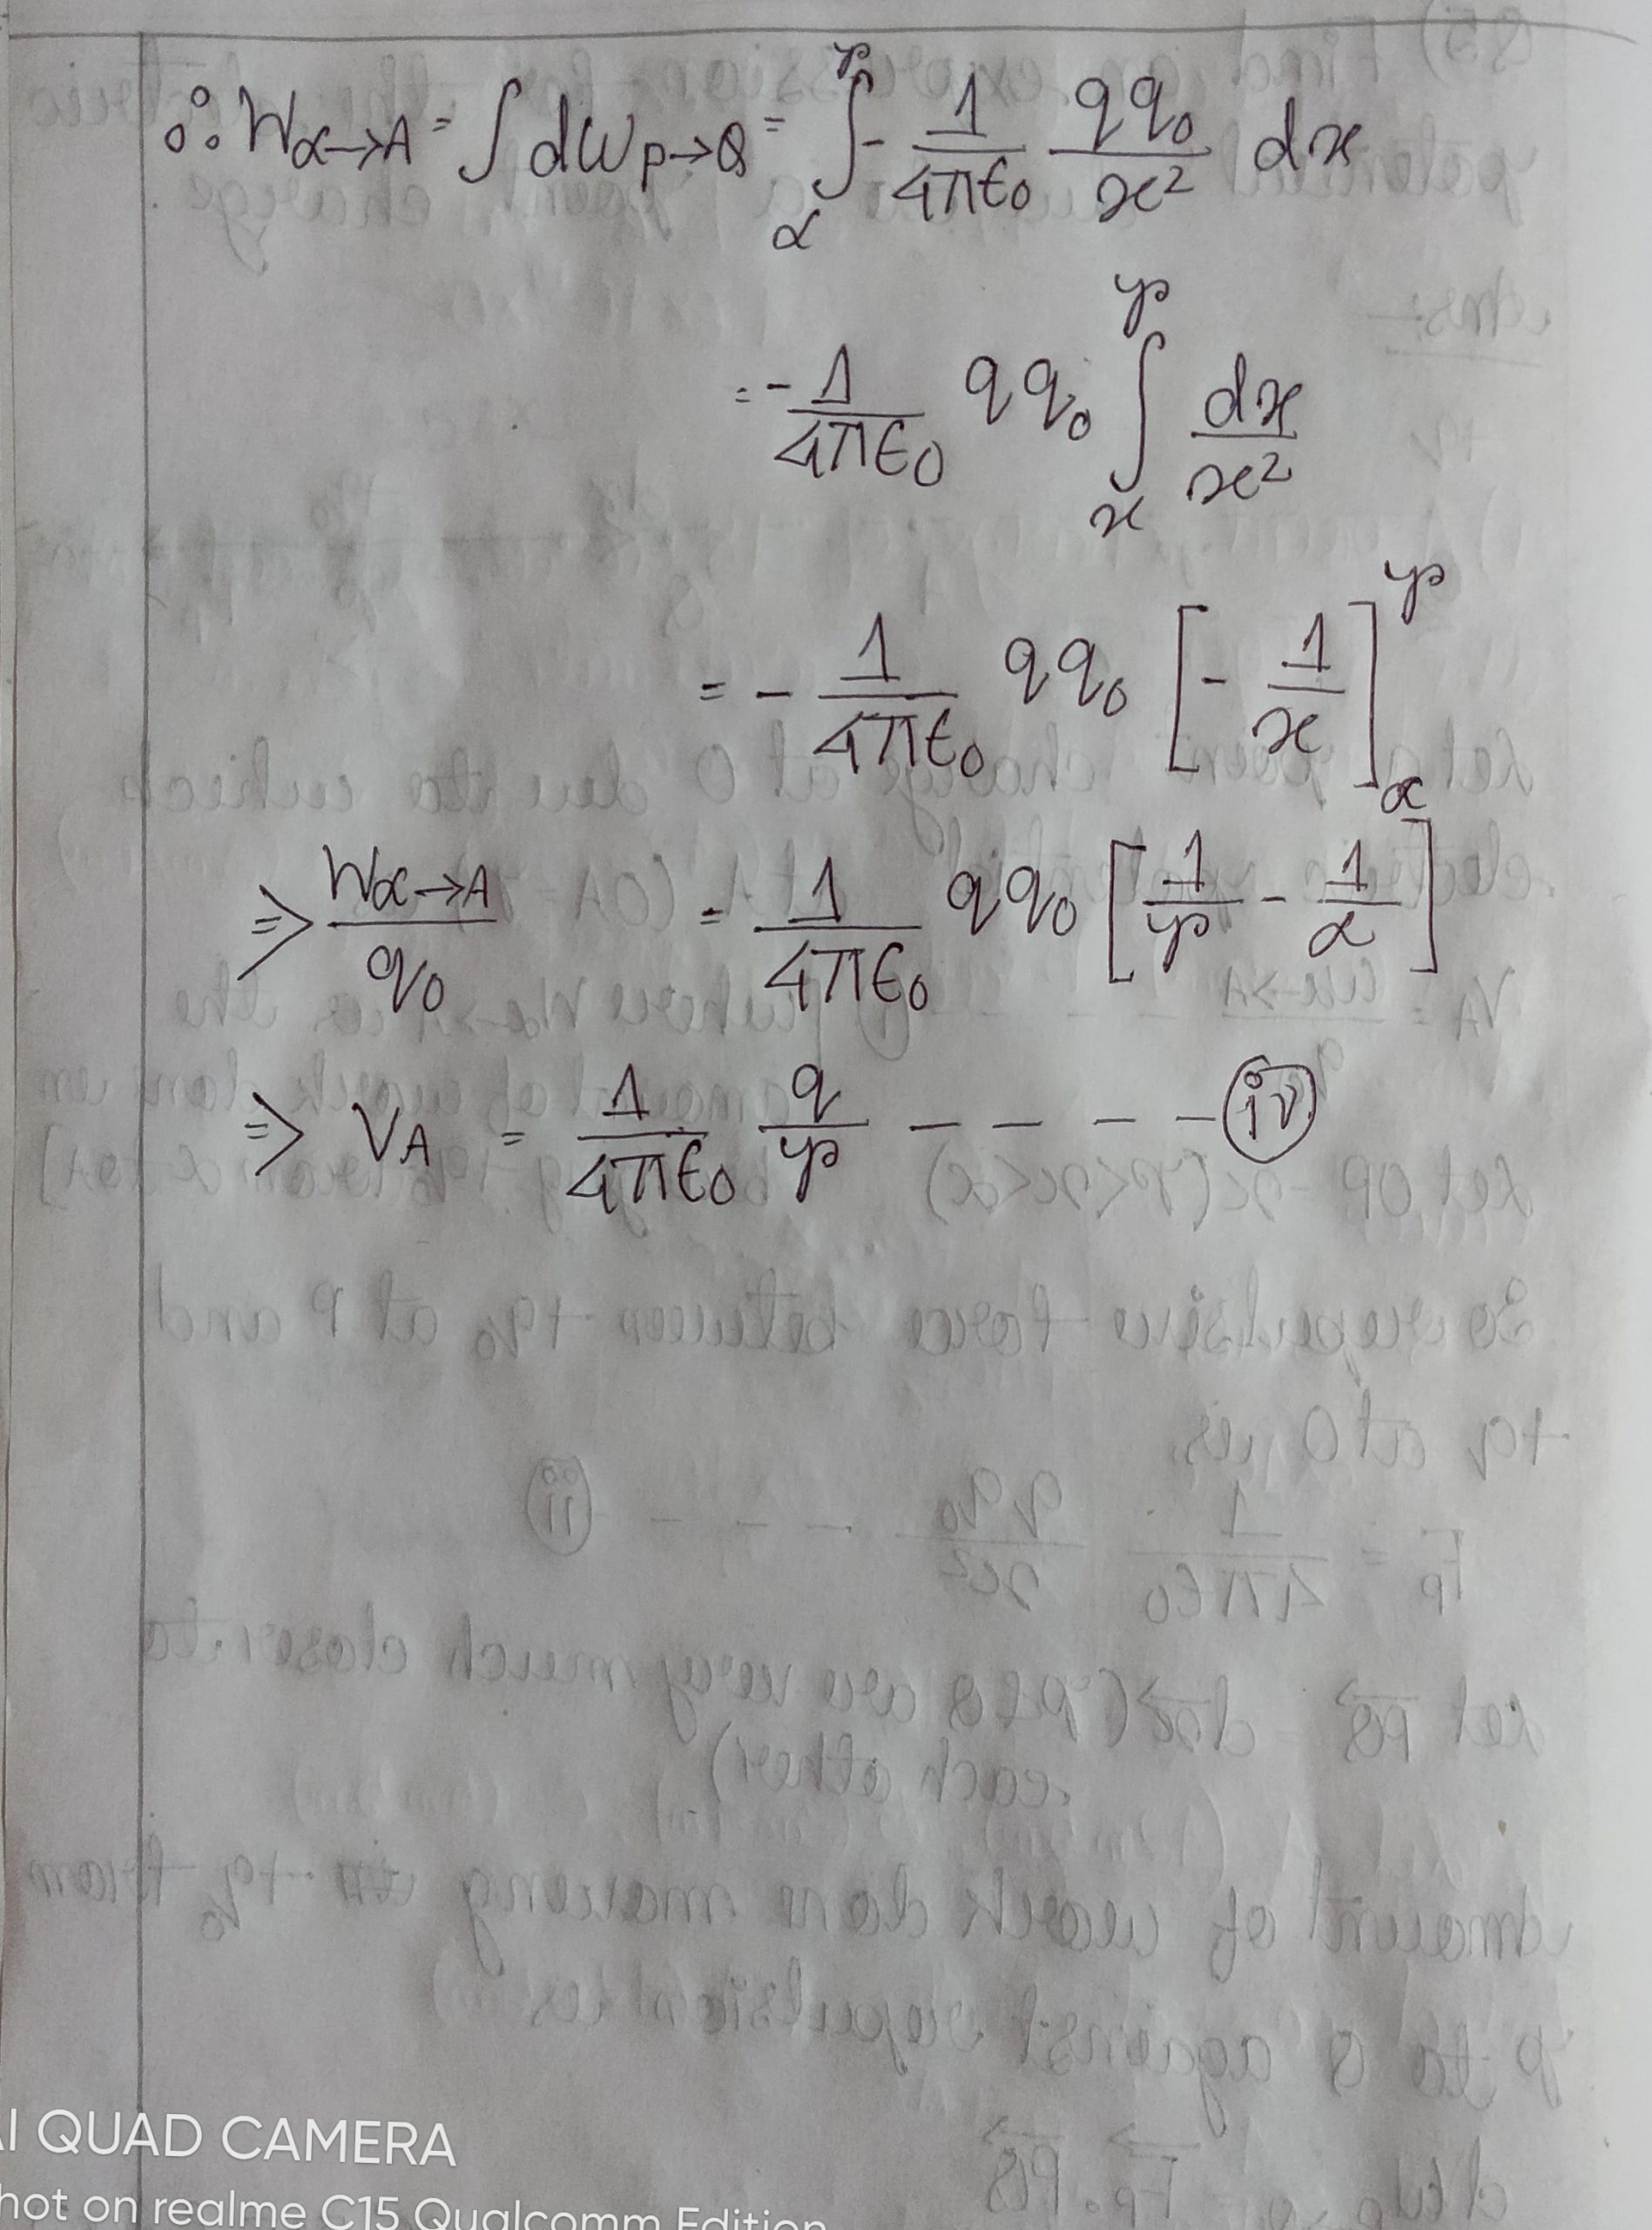 ∴ Wα→A = ∫ dWP→Q = ∫_α^r - 1/4πϵ0 qq0/x² dx
= - 1/4πϵ0 qq0 ∫_x^r dx/x²
= - 1/4πϵ0 qq0 [- 1/x]_α^r
⇒ Wα→A/q0 = 1/4πϵ0 qq0 [1/r - 1/α]
⇒ VA = 1/4πϵ0 q/r - - - - (iv)
AI QUAD CAMERA
hot on realme C15 Qualcomm Edition